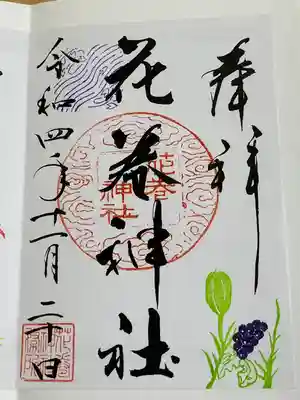 奉拝
花巻神社
令和四年十一月二十日
花巻
神社